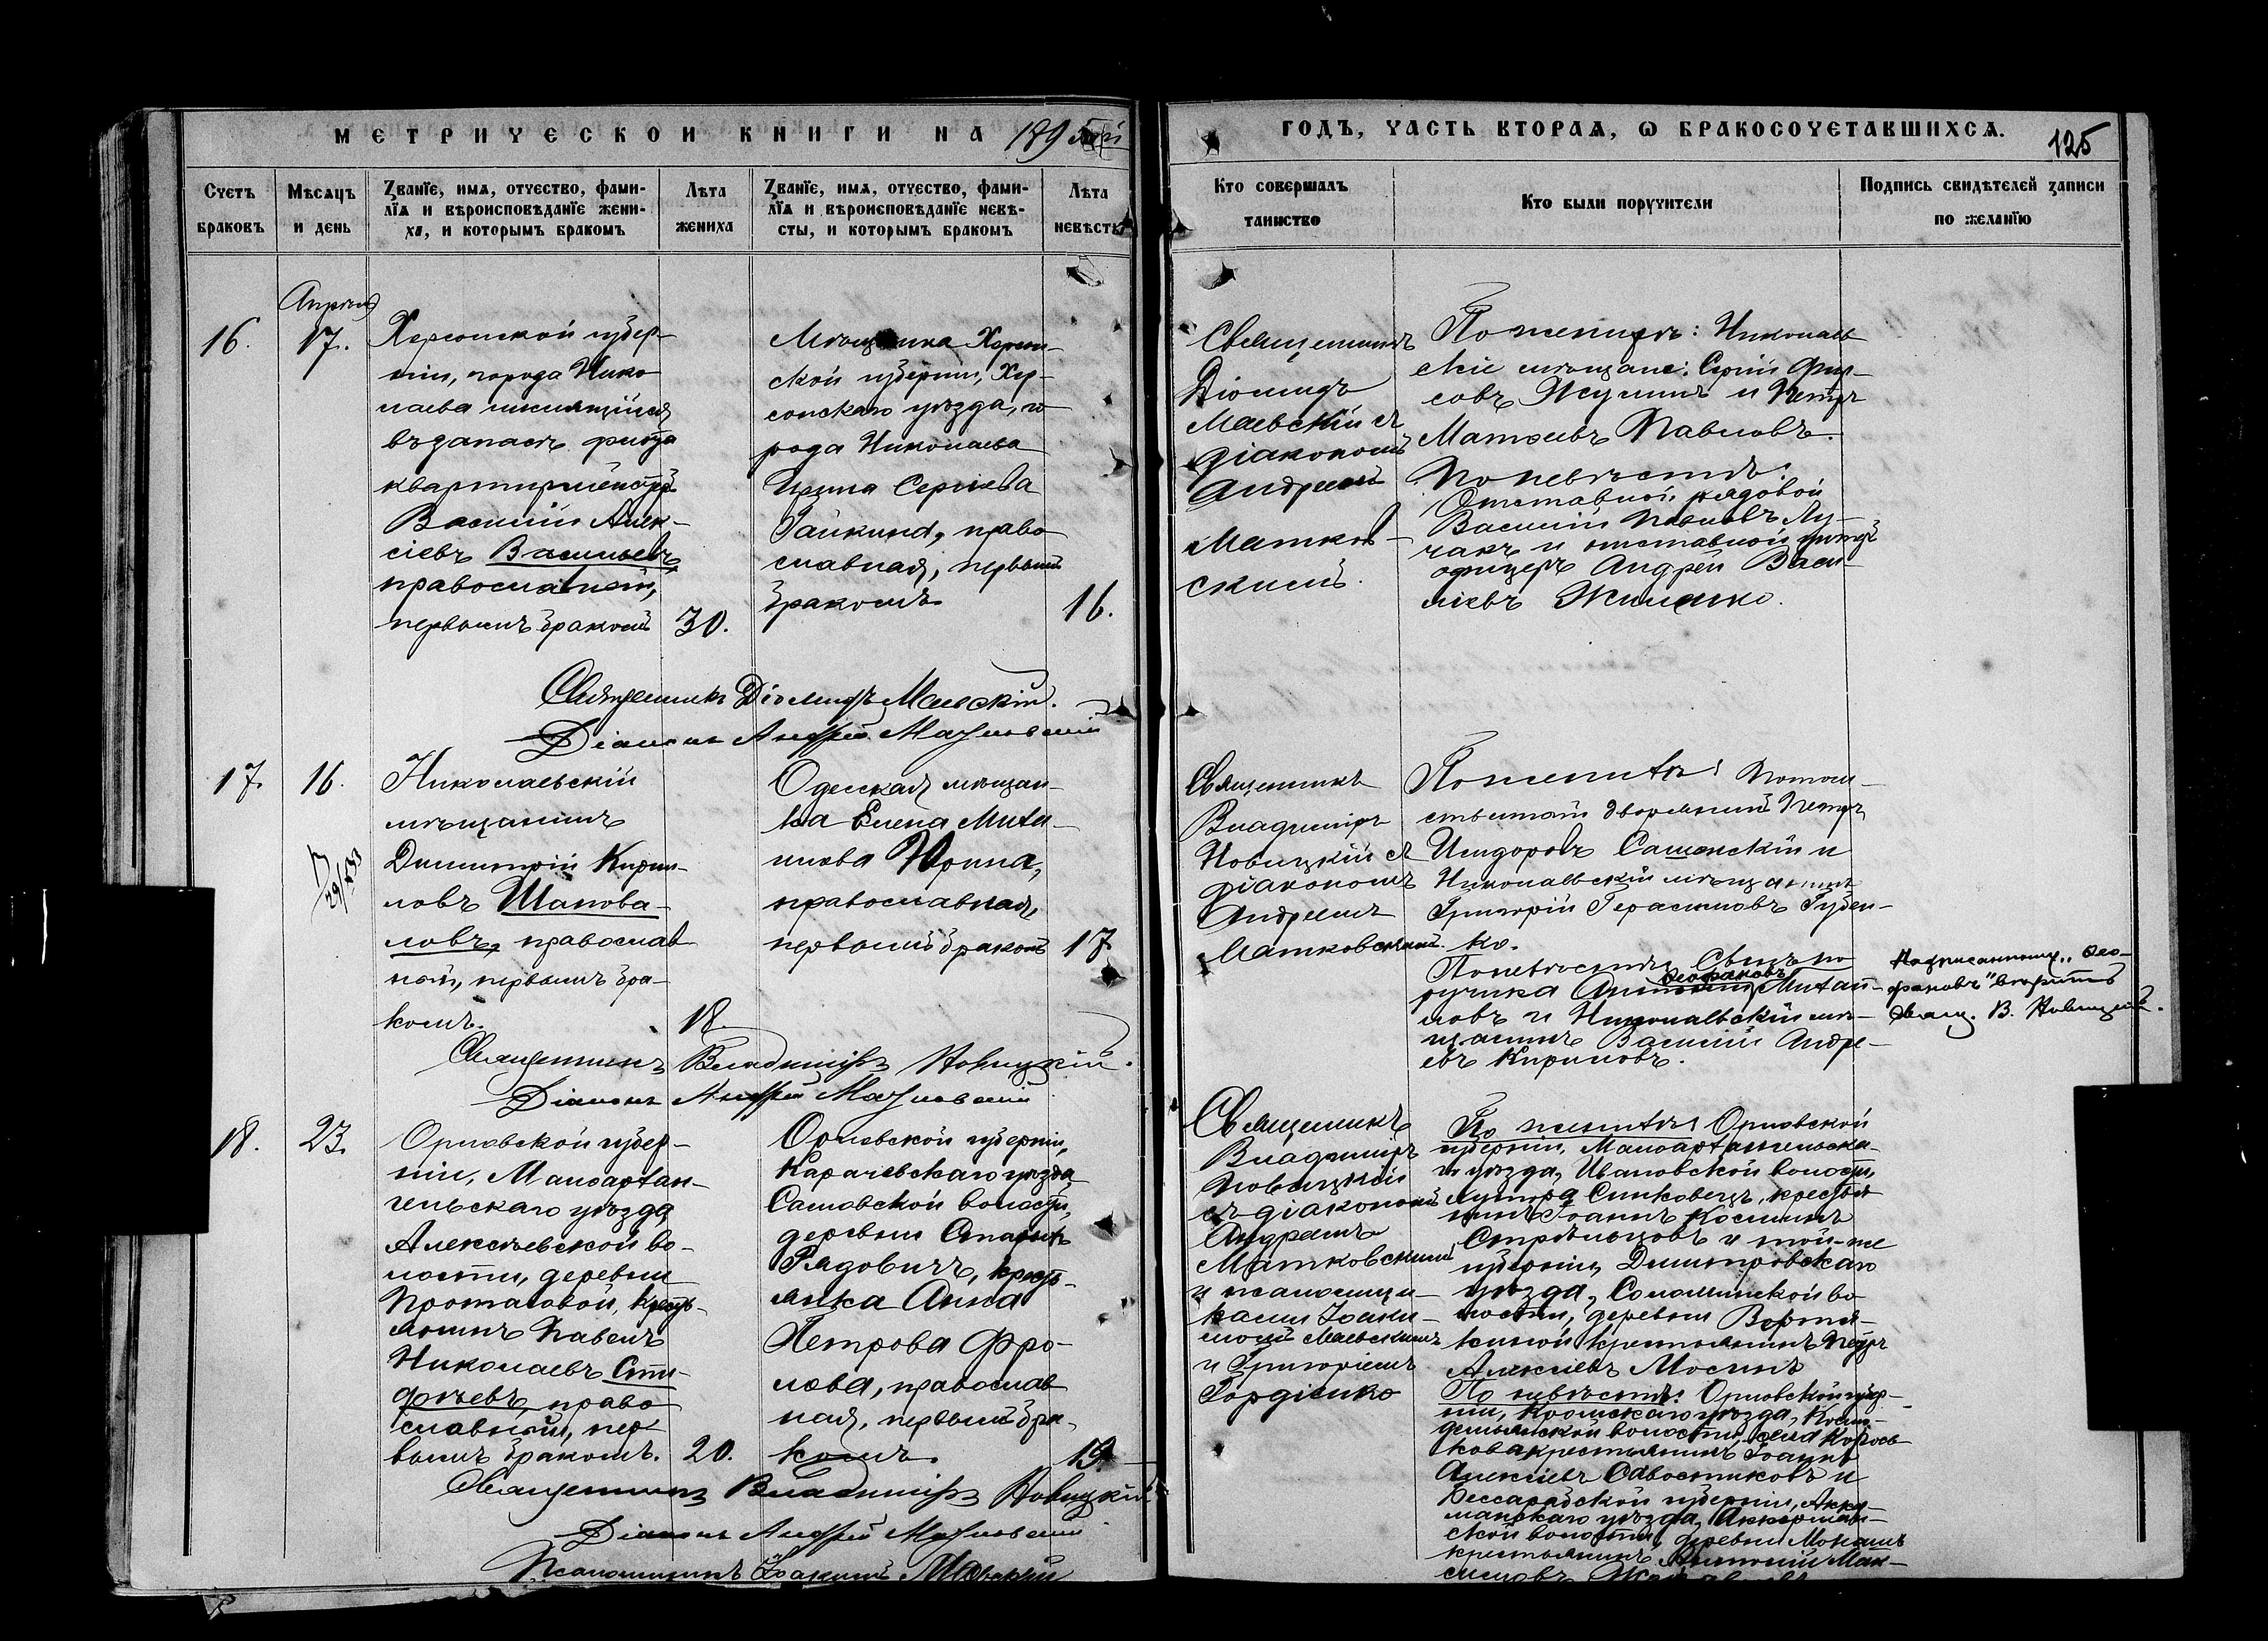 МЕТРИЧЕСКОЙ КНИГИ НА 189
ГОДЪ, ЧАСТЬ ВТОРАЯ, Ѡ БРАКОСОЧЕТАВШИХСЯ.
125
Счетъ браковъ
Мѣсяцъ и день
Званїе, имя, отчество, фами-
лїя и вѣроисповѣданїе жени-
ха, и которымъ бракомъ
Лѣта жениха
Званїе, имя, отчество, фами-
лїя и вѣроисповѣданїе невѣ-
сты, и которымъ бракомъ
Лѣта невѣсты
Кто совершалъ таинство
Кто были поручители
Подпись свидѣтелей записи
по желанїю
16.
17.
Херсонской губер-
ніи, города Нико
лаева числящійся
въ запасѣ флота
Василій Алек-
сіевъ Васильевъ,
православный,
первымъ бракомъ
30.
Мѣщанка Херсон-
ской губерніи, Хер-
сонскаго уѣзда, го
рода Николаева
Ирина Сергіева
Гайкина, право
славная, первымъ
бракомъ
16.
Священникъ
Діомидъ
Маевскій съ
діакономъ
Андреемъ
Матков-
скимъ.
По женихѣ: Николаев
скіе мѣщане: Сергій Фир-
совъ и Петръ
Матѳіевъ Павловъ.
По невѣстѣ:
Отставной рядовой
Василій Павловъ Лу-
чакъ и отставной унтеръ
офицеръ Андрей Васи-
ліевъ
Священникъ Діомидъ Маевскій.
Діаконъ Андрей Матковскій
17.
16.
Николаевскій
мѣщанинъ
Димитрій Кирил-
ловъ Шапова-
ловъ, православ
ный, первымъ бра-
комъ.
18.
Одесская мѣщан-
ка Елена Михаи-
лова Юрина,
православная,
первымъ бракомъ
17.
Священникъ
Владиміръ
Новицкій съ
діакономъ
Андреемъ
Матковскимъ.
По женихѣ: Потом-
ственный дворянинъ Петръ
Исидоровъ и
Николаевскій мѣщанинъ
Григорій Герасимовъ Губен-
ко.
По невѣстѣ: Сынъ по
ручика Михаи-
ловъ и Николаевскій мѣ-
щанинъ Василій Андре-
евъ Кириловъ.
Надписанному „Ѳео-
фановъ" вѣрить
Свящ. В. Новицкій.
Священникъ Владиміръ Новицкій.
Діаконъ Андрей Матковскій
18.
23.
Орловской губер-
ніи, Малоархан-
гельскаго уѣзда
Алексѣевской во-
лости, деревни
Протасовой, кресть-
янинъ Павелъ
Николаевъ
право
славный, пер
вымъ бракомъ.
20.
Орловской губерніи,
Карачевскаго уѣзда
волости,
деревни
Рядовичъ, кресть-
янка Анна
Петрова Фро-
лова, православ
ная, первымъ бра-
комъ.
19.
Священникъ
Владиміръ
Новицкій
съ діакономъ
Андреемъ
Матковскимъ
и псаломщи-
ками Іоаки-
момъ Маевскимъ
и Григоріемъ
Гордіенко
По женихѣ: Орловской
губерніи, Малоархангельска-
го уѣзда, Ивановской волости,
хутора Синковецъ, крестья
нинъ Іоаннъ Косминъ
Стрѣльцовъ и той-же
губерніи, Димитровскаго
уѣзда, Соломинской во
лости, деревни
крестьянинъ Петръ
Алексіевъ Мосинъ
По невѣстѣ: Орловской губер-
ніи, Кромскаго уѣзда,
волости, села
крестьянинъ Іоаннъ
Алексіевъ Савостиковъ и
Бессарабской губерніи, Акке-
манскаго уѣзда, Аккерман-
ской волости, деревни
крестьянинъ
Священникъ Владиміръ Новицкій
Діаконъ Андрей Матковскій
Псаломщикъ Іоакимъ Маевскій